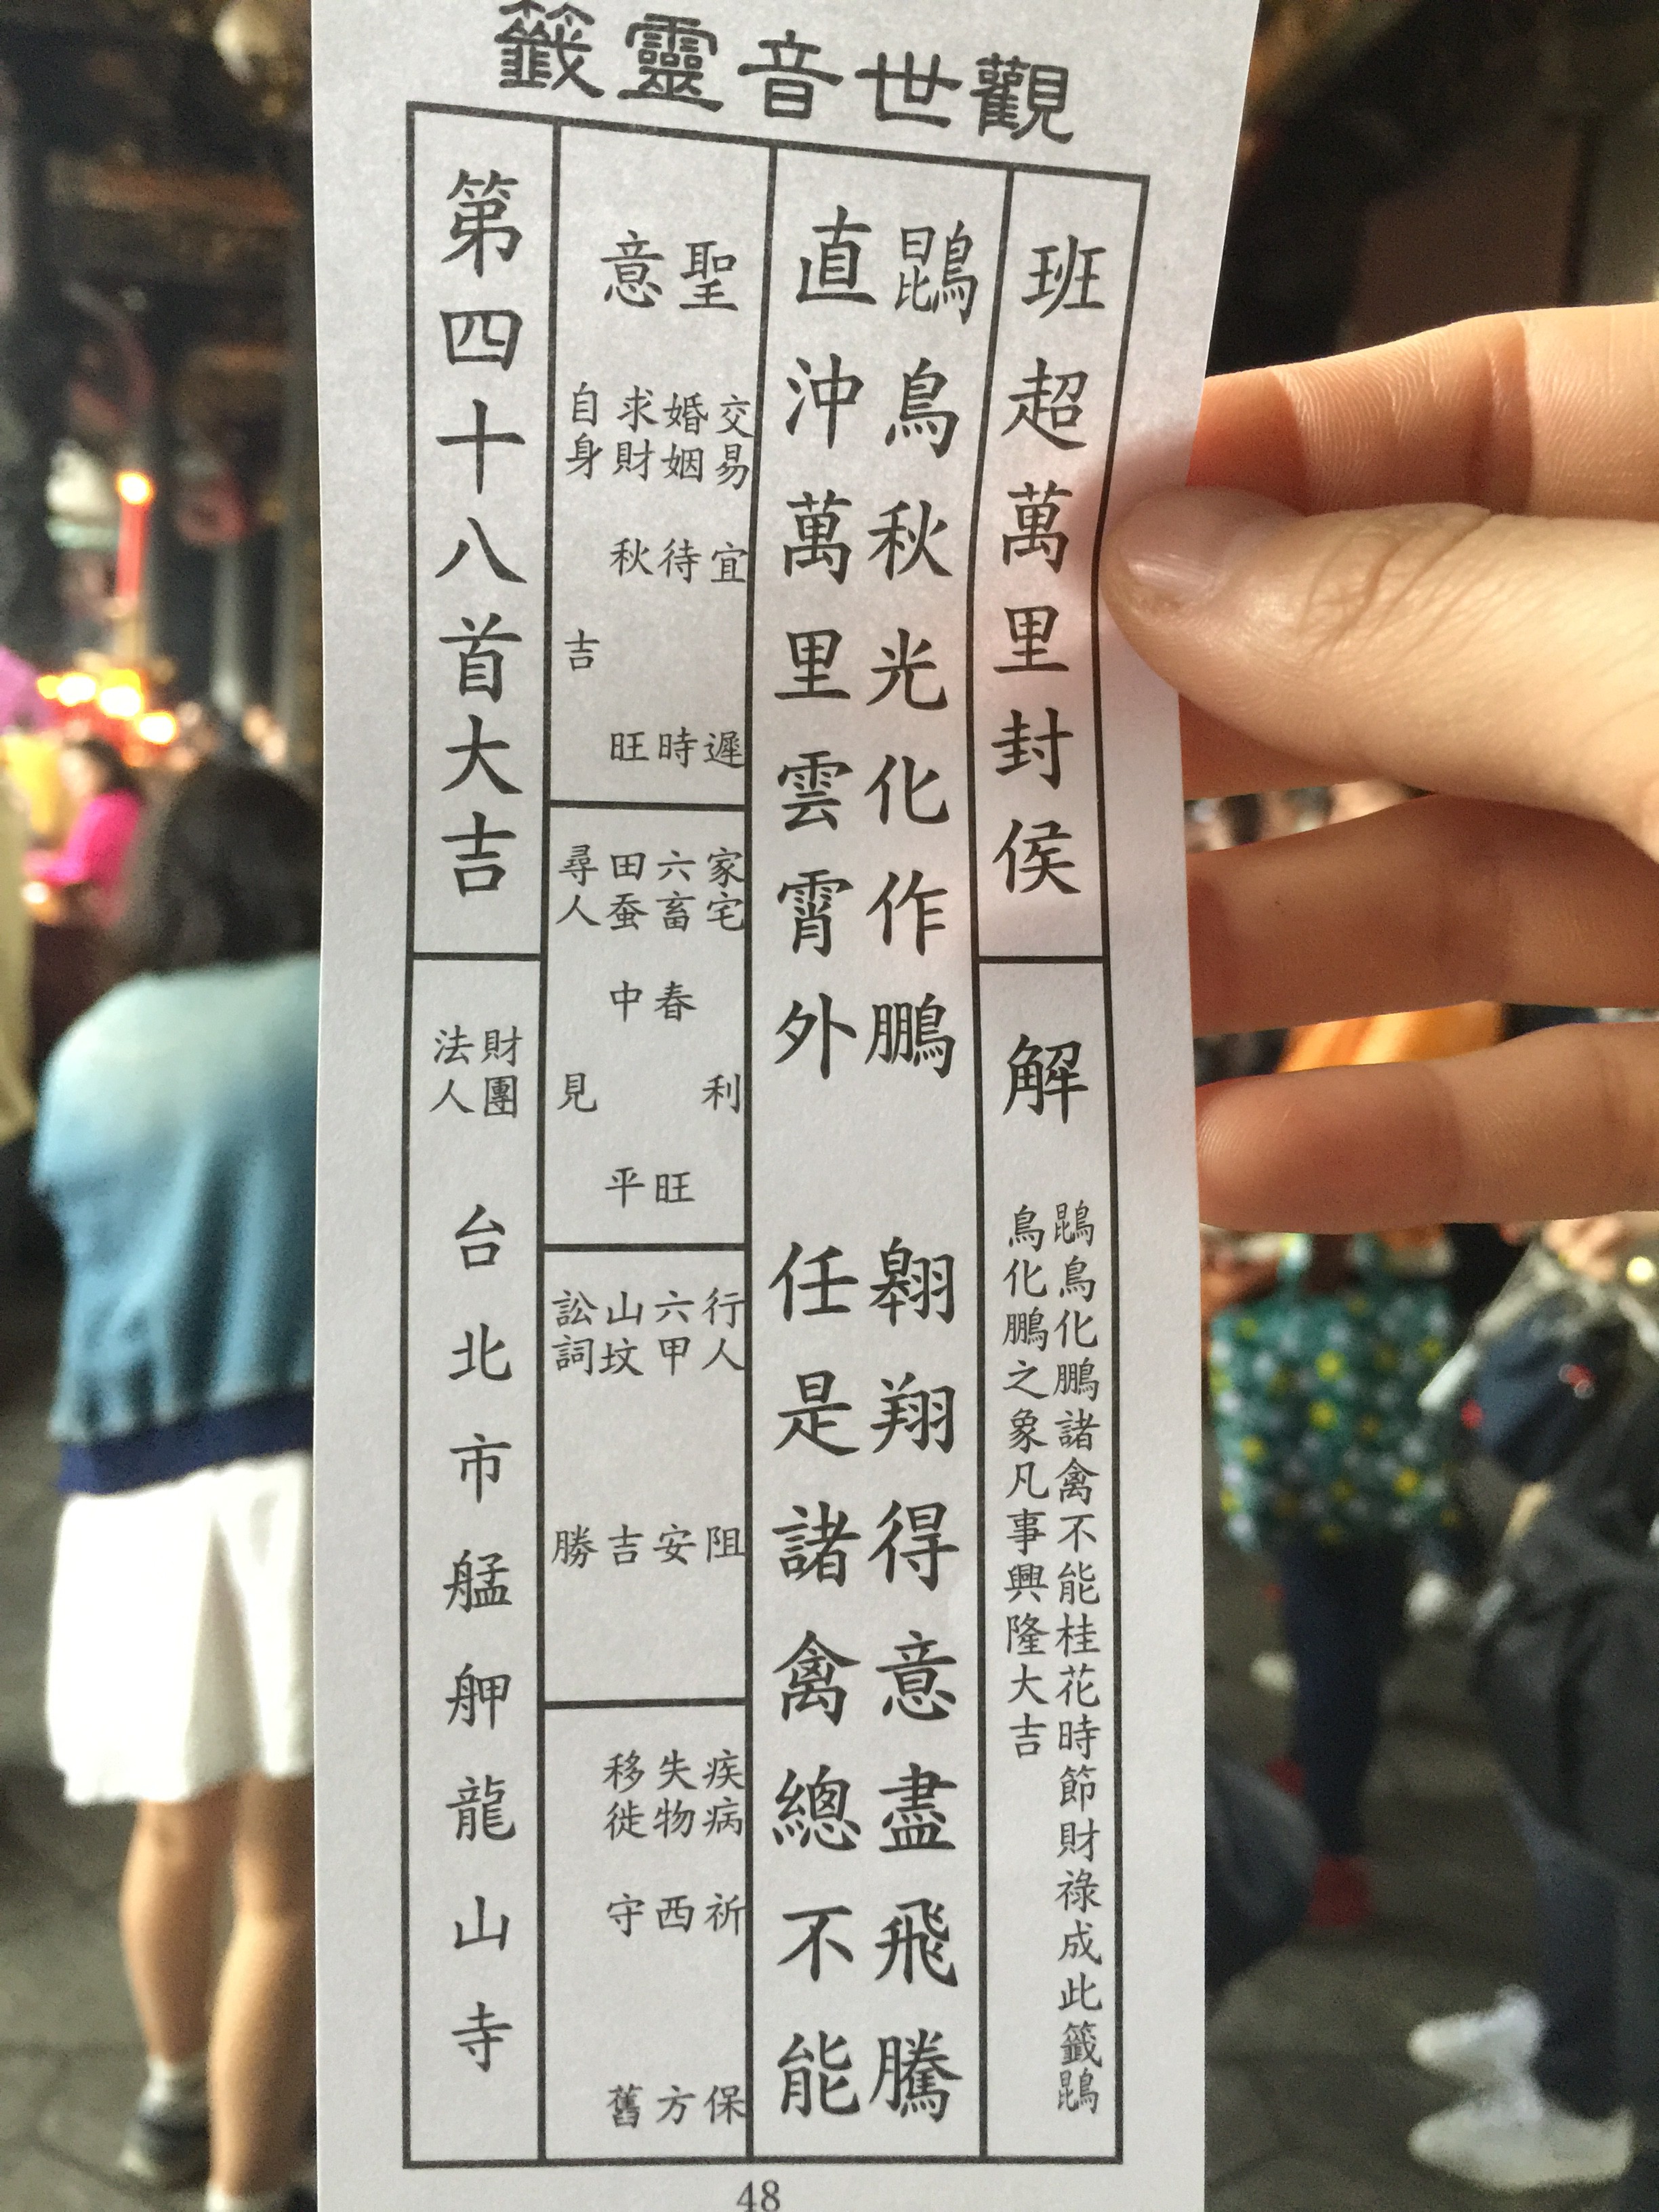 觀世音靈籤
班超萬里封侯
解
鵾鳥化鵬諸禽不能桂花時節財祿成此籤鵾
鳥化鵬之象凡事興隆大吉
鵾鳥秋光化作鵬 翱翔得意盡飛騰
直沖萬里雲霄外 任是諸禽總不能
聖意
交易 宜 遲
婚姻 待 時
求財 秋 旺
自身 吉
家宅 利
六畜 春 旺
田蚕 中 平
尋人 見
行人 阻
六甲 安
山坟 吉
訟詞 勝
疾病 祈 保
失物 西 方
移徙 守 舊
第四十八首大吉
財團
法人
台北市艋舺龍山寺
48